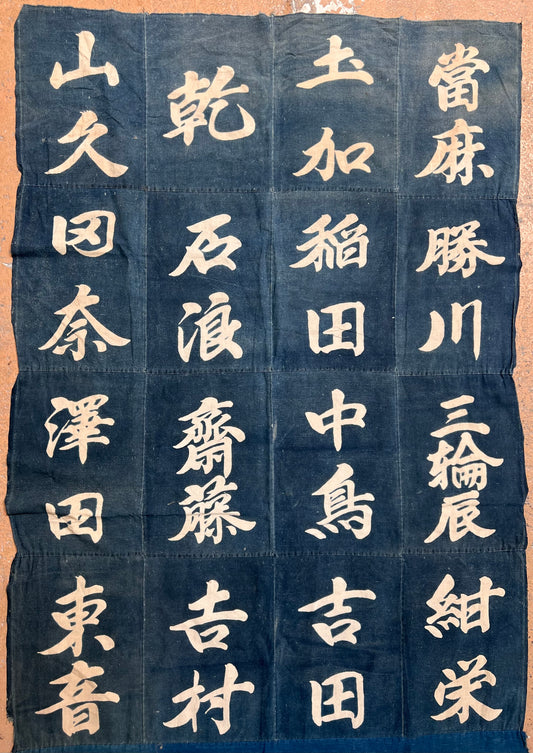 當麻
勝川
三輪辰
紺栄
土加
稲田
中鳥
吉田
乾
石浪
齋藤
吉村
山久
岡奈
澤田
東音